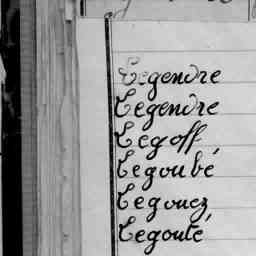 Legendre
Legendre
Legoff
Legoubé
Legouez
Legoulé